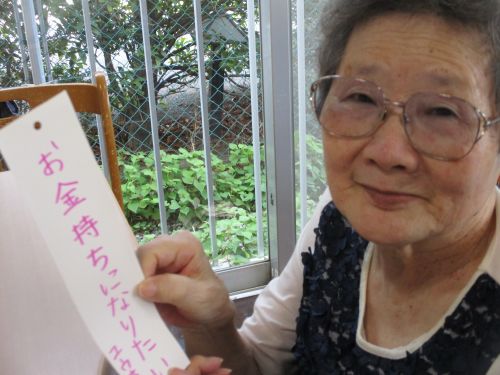 お金持ちになりたい